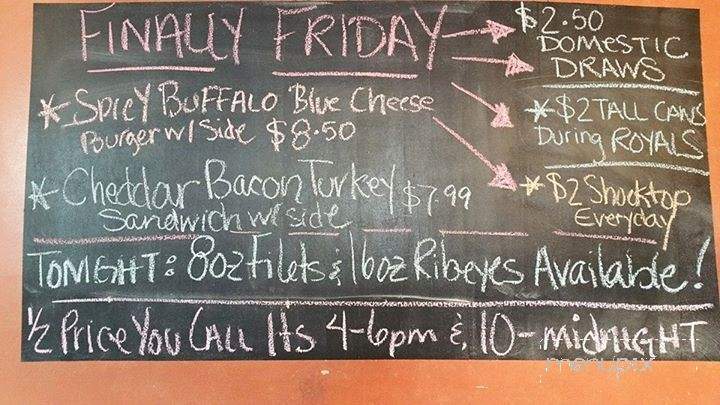 FINALLY FRIDAY
* SPICY BUFFALO Blue Cheese
Burger w/ Side $8.50
* Cheddar Bacon Turkey $7.99
Sandwich w/ side
$2.50
DOMESTIC
DRAWS
* $2 TALL CANS
During ROYALS
* $2 Shocktop
Everyday
TONIGHT: 8oz Filets & 16oz Ribeyes Available!
1/2 Price You CALL Its 4-6pm & 10-midNIGHT
menupix